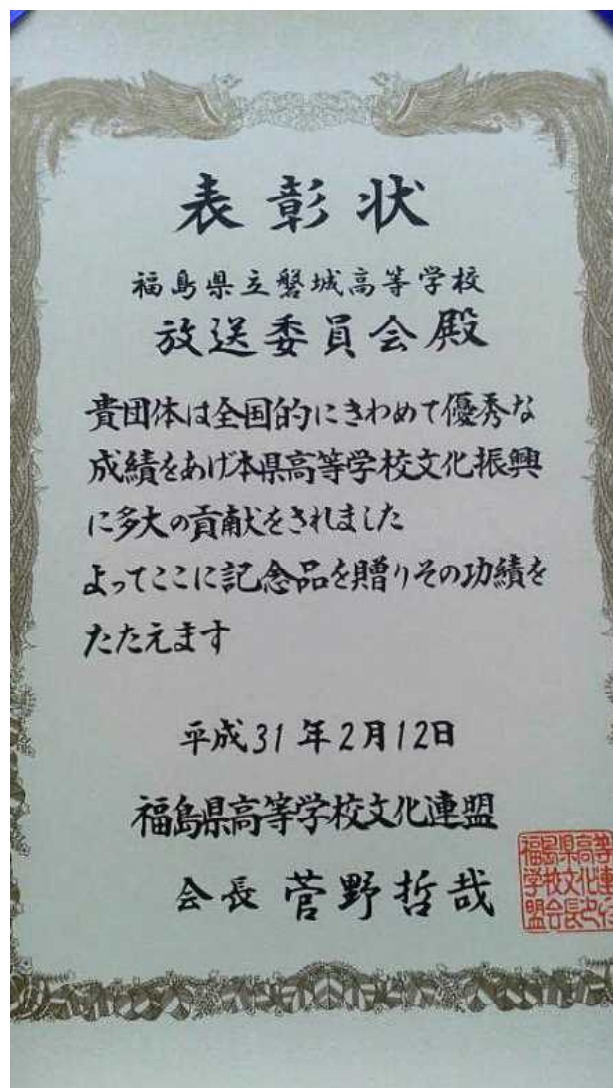 表彰状
福島県立磐城高等学校
放送委員会殿
貴団体は全国的にきわめて優秀な
成績をあげ本県高等学校文化振興
に多大の貢献をされました
よってここに記念品を贈りその功績を
たたえます
平成31年2月12日
福島県高等学校文化連盟
会長 菅野哲哉
福島県高等
学校文化連
盟会長之印